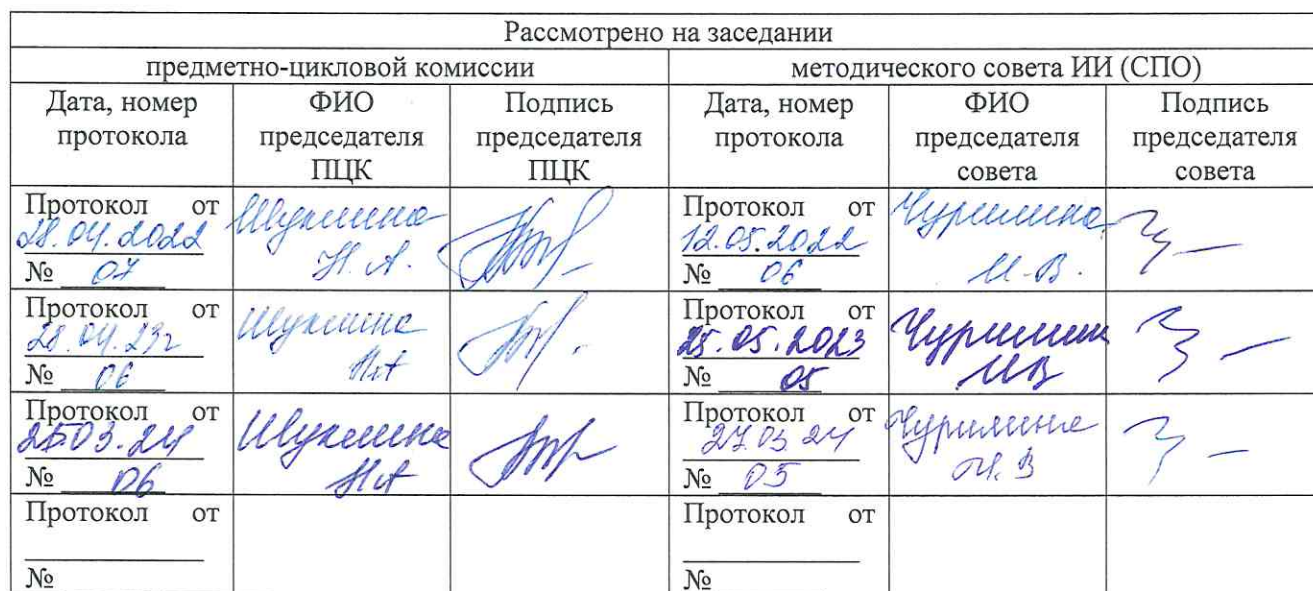 Рассмотрено на заседании
предметно-цикловой комиссии методического совета ИИ (СПО)
Дата, номер протокола ФИО председателя ПЦК Подпись председателя ПЦК Дата, номер протокола ФИО председателя совета Подпись председателя совета
Протокол от 28.04.2022 № 07 Шукшина Н.А. Протокол от 12.05.2022 № 06 Чурилина И.В.
Протокол от 28.04.23г № 06 Шукшина НА Протокол от 25.05.2023 № 05 Чурилина ИВ
Протокол от 25.03.24 № 06 Шукшина НА Протокол от 27.03.24 № 05 Чурилина И.В
Протокол от № Протокол от №